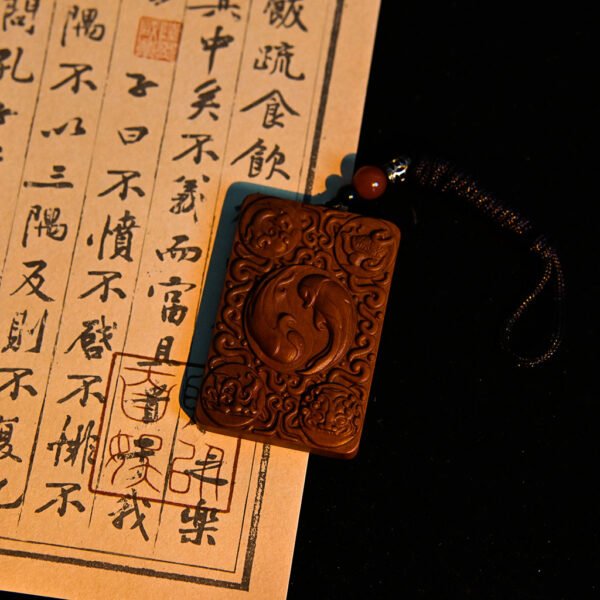 飯疏食飲之樂
其中矣不義而富且貴於我
子曰不憤不啟不悱不
隅不以三隅反則不復也
問孔子